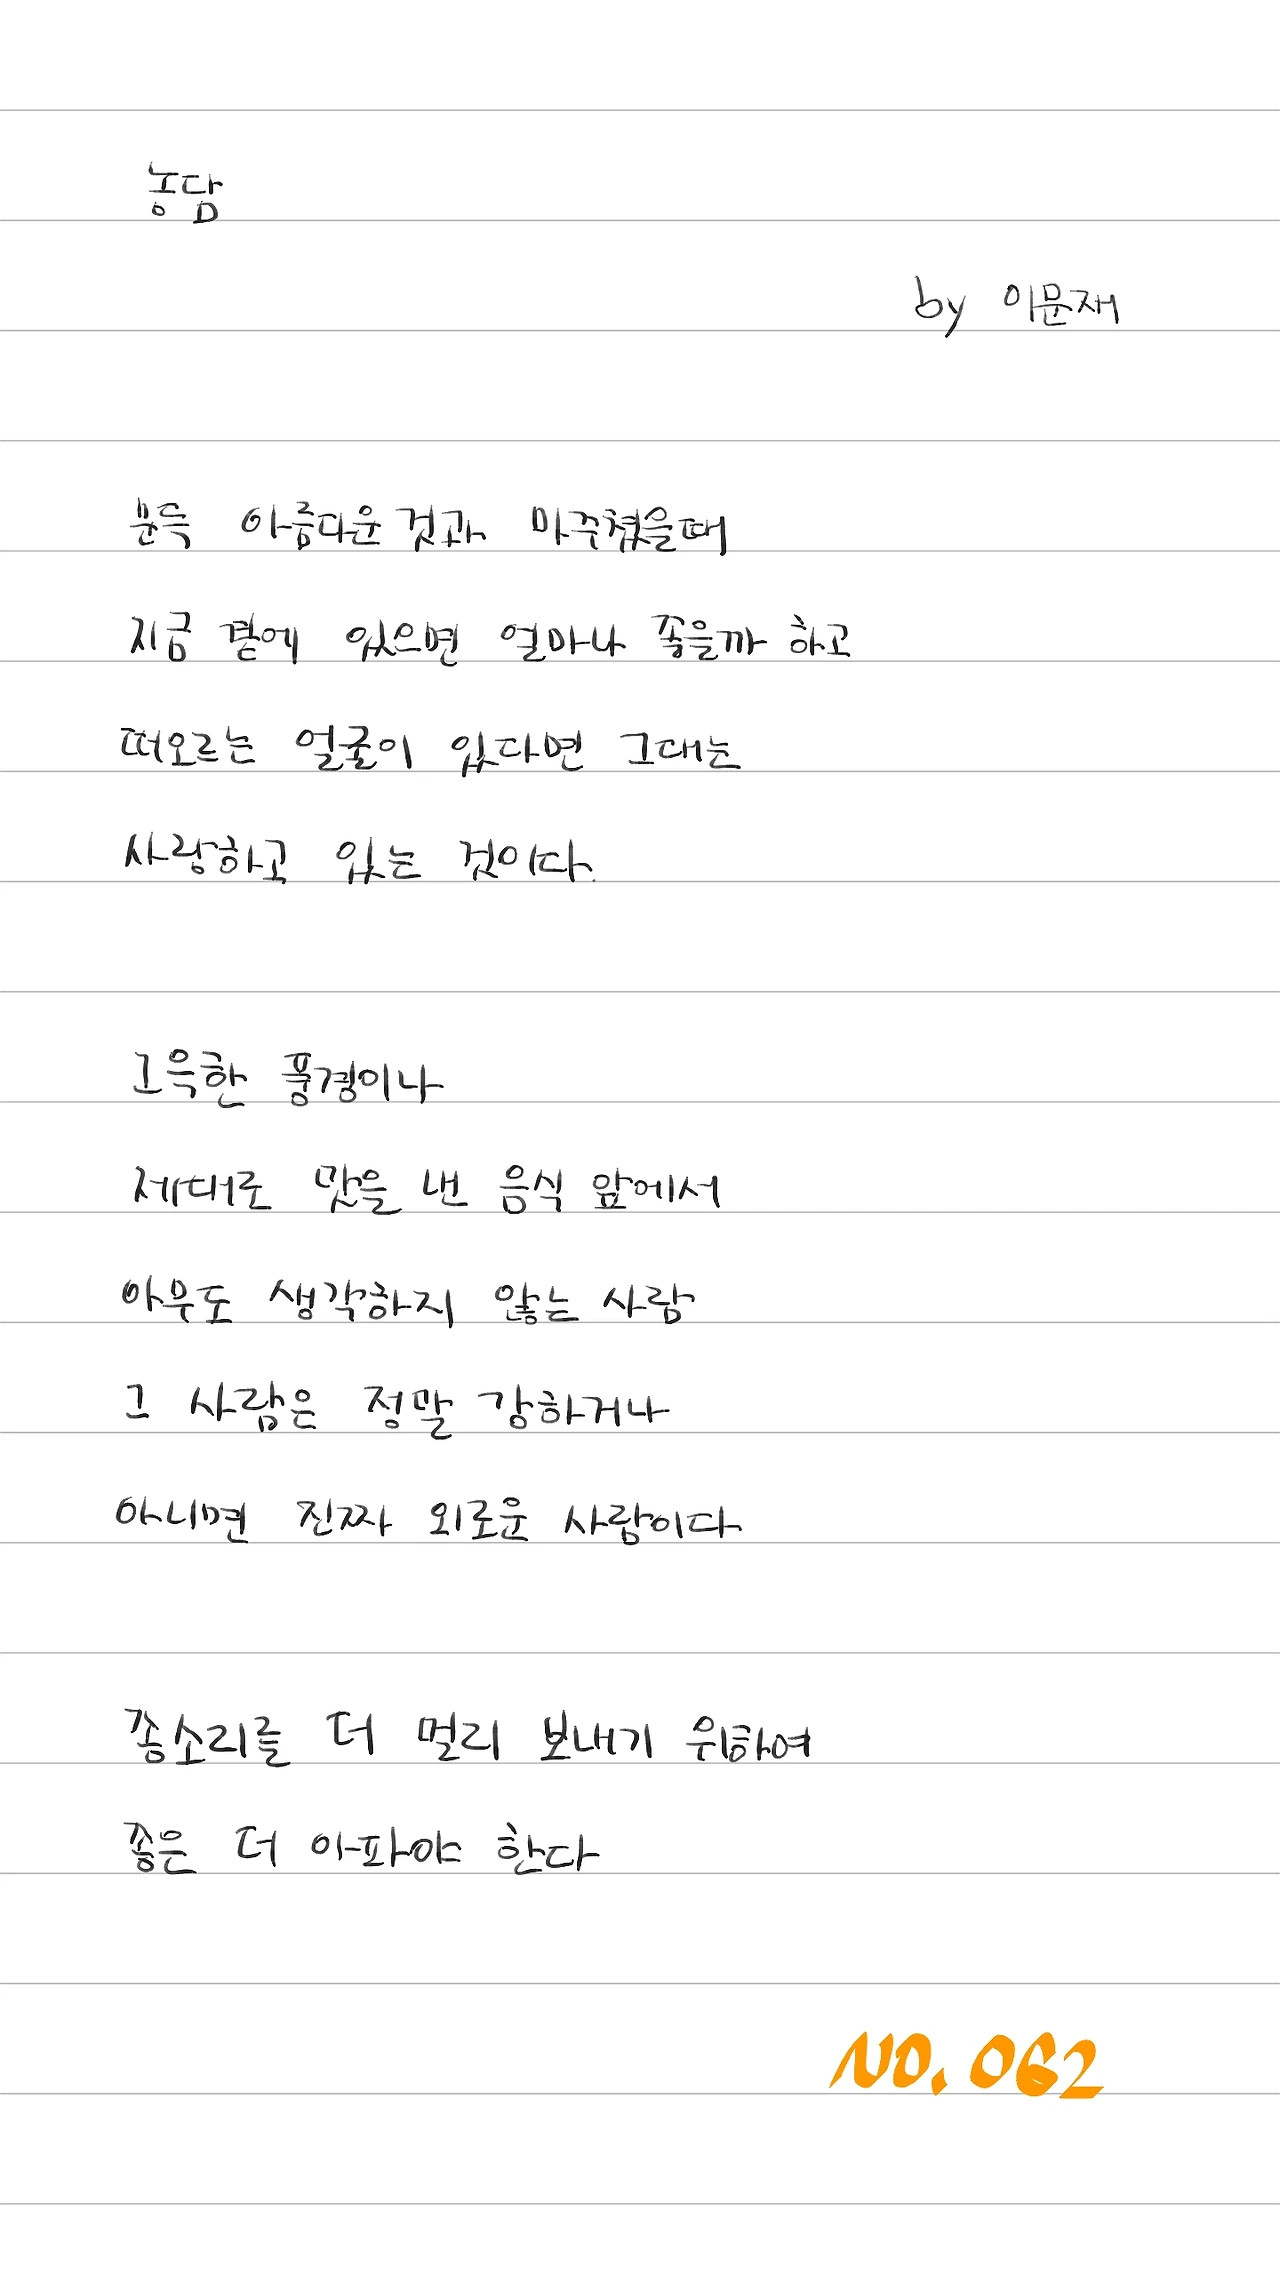 농담
by 이문재
문득 아름다운 것과 마주쳤을때
지금 곁에 있으면 얼마나 좋을까 하고
떠오르는 얼굴이 있다면 그대는
사랑하고 있는 것이다.
그윽한 풍경이나
제대로 맛을 낸 음식 앞에서
아무도 생각하지 않는 사람
그 사람은 정말 강하거나
아니면 진짜 외로운 사람이다
종소리를 더 멀리 보내기 위하여
종은 더 아파야 한다
NO. 062